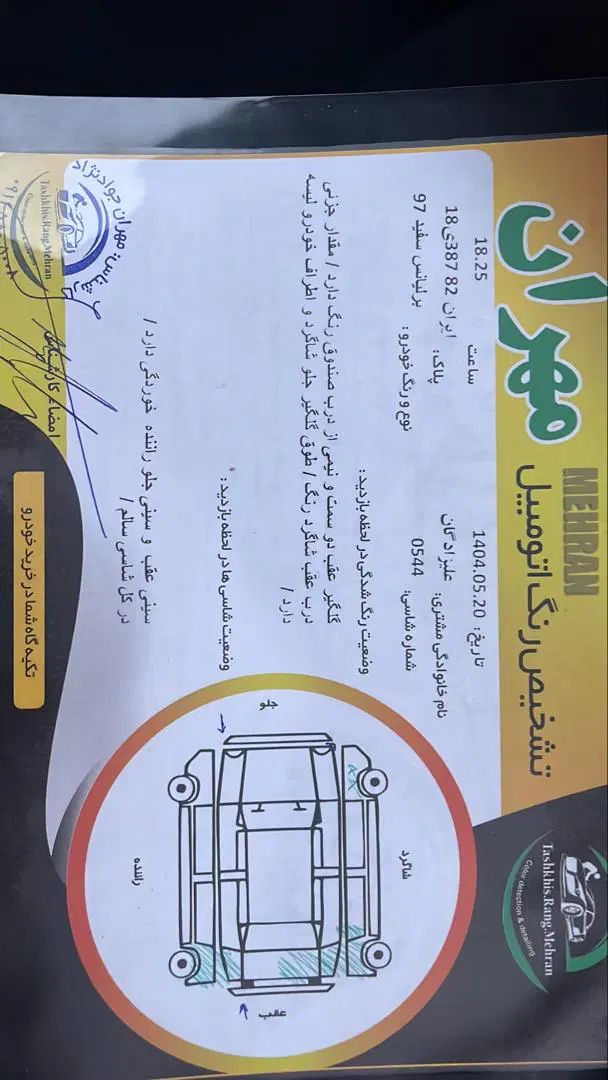 مهران
MEHRAN
تشخیص رنگ اتومبیل
Tashkhis.Rang.Mehran
Color detection & detailing
تاریخ: 1404.05.20
ساعت 18.25
نام خانوادگی مشتری: علیزادگان
پلاک: ایران 82 387ی18
شماره شاسی: 0544
نوع و رنگ خودرو: برلیانس سفید 97
وضعیت رنگ شدگی در لحظه بازدید:
گلگیر عقب دو سمت و نیمی از درب صندوق رنگ دارد / مقدار جزئی
درب عقب شاگرد رنگ / طوق گلگیر جلو شاگرد و اطراف خودرو لیسه
دارد /
وضعیت شاسی ها در لحظه بازدید:
سینی عقب و سینی جلو راننده خوردگی دارد /
در کل شاسی سالم /
جلو
شاگرد
راننده
عقب
امضاء کارشناس
مهران جوادنژاد
Tashkhis.Rang.Mehran
تکیه گاه شما در خرید خودرو